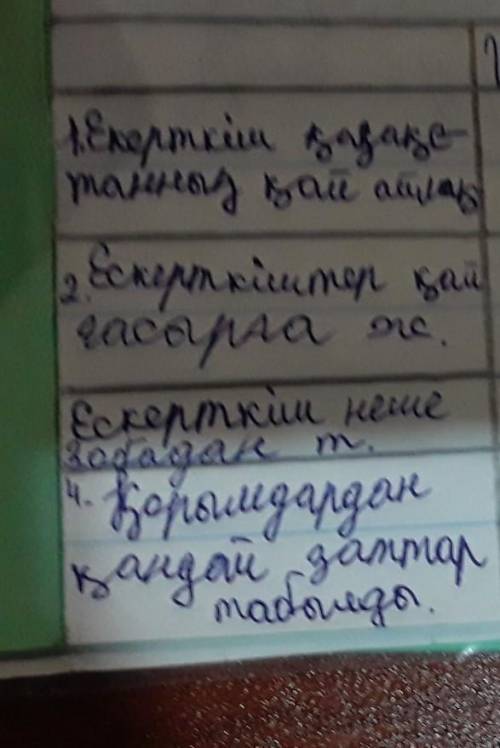 1. Екерткіш қазақс-
танның қай аймақ
2. Ескерткіштер қай
ғасырға ж.
Ескерткіш неше
зобадан т.
4. Қорымдардан
қандай заттар
табылды.